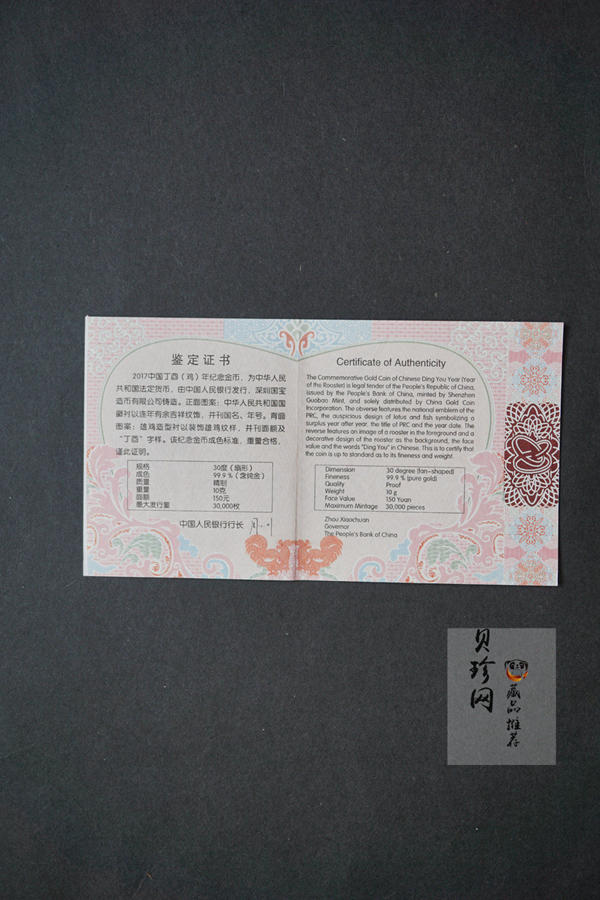 鉴定证书
2017中国丁酉（鸡）年纪念金币，为中华人民
共和国法定货币，由中国人民银行发行，深圳国宝
造币有限公司铸造。正面图案：中华人民共和国国
徽衬以连年有余吉祥纹饰，并刊国名、年号。背面
图案：雄鸡造型衬以装饰雄鸡纹样，并刊面额及
“丁酉”字样。该纪念金币成色标准，重量合格，
谨此证明。
规格 30度（扇形）
成色 99.9%（含纯金）
质量 精制
重量 10克
面额 150元
最大发行量 30,000枚
中国人民银行行长
Certificate of Authenticity
The Commemorative Gold Coin of Chinese Ding You Year (Year
of the Rooster) is legal tender of the People's Republic of China,
issued by the People's Bank of China, minted by Shenzhen
Guobao Mint, and solely distributed by China Gold Coin
Incorporation. The obverse features the national emblem of the
PRC, the auspicious design of lotus and fish symbolizing a
surplus year after year, the title of PRC and the year date. The
reverse features an image of a rooster in the foreground and a
decorative design of the rooster as the background, the face
value and the words "Ding You" in Chinese. This is to certify that
the coin is up to standard as to its fineness and weight.
Dimension 30 degree (fan-shaped)
Fineness 99.9 % (pure gold)
Quality Proof
Weight 10 g
Face Value 150 Yuan
Maximum Mintage 30,000 pieces
Zhou Xiaochuan
Governor
The People's Bank of China
贝珍网
藏品推荐